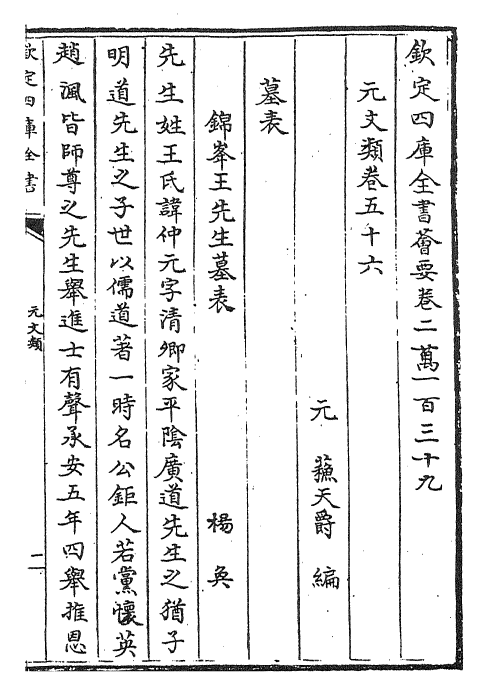 欽定四庫全書薈要卷二萬一百三十九
元文類卷五十六
元 蘓天爵 編
墓表
錦峯王先生墓表 楊奐
先生姓王氏諱仲元字清卿家平陰廣道先生之猶子
明道先生之子世以儒道著一時名公鉅人若黨懷英
趙渢皆師尊之先生舉進士有聲承安五年四舉推恩
欽定四庫全書
元文類
二